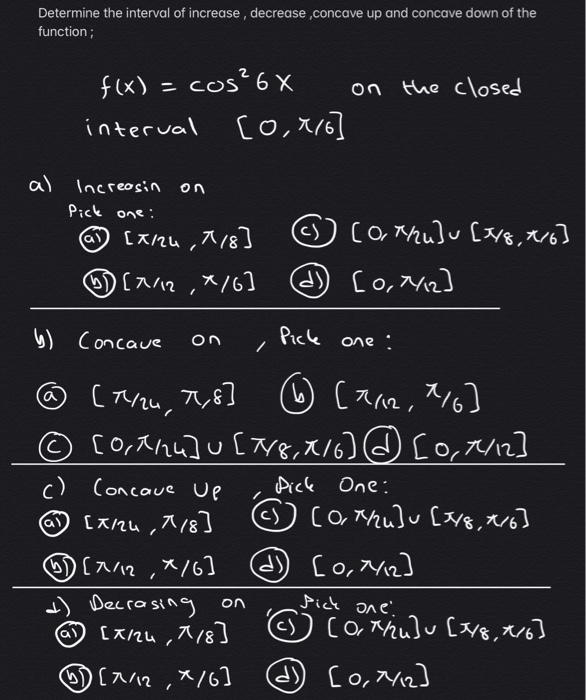 Determine the interval of increase , decrease ,concave up and concave down of the
function ;
f(x) = cos² 6x on the closed
interval [0, π/6]
a) Increasin on
Pick one:
a) [π/24, π/8] c) [0, π/24] ∪ [π/8, π/6]
b) [π/12, π/6] d) [0, π/12]
b) Concave on , Pick one :
a [π/24, π,8] b [π/12, π/6]
c [0, π/24] ∪ [π/8, π/6] d [0, π/12]
c) Concave Up , Pick One:
a) [π/24, π/8] c) [0, π/24] ∪ [π/8, π/6]
b) [π/12, π/6] d) [0, π/12]
d) Decrasing on , Pick one:
a) [π/24, π/8] c) [0, π/24] ∪ [π/8, π/6]
b) [π/12, π/6] d) [0, π/12]